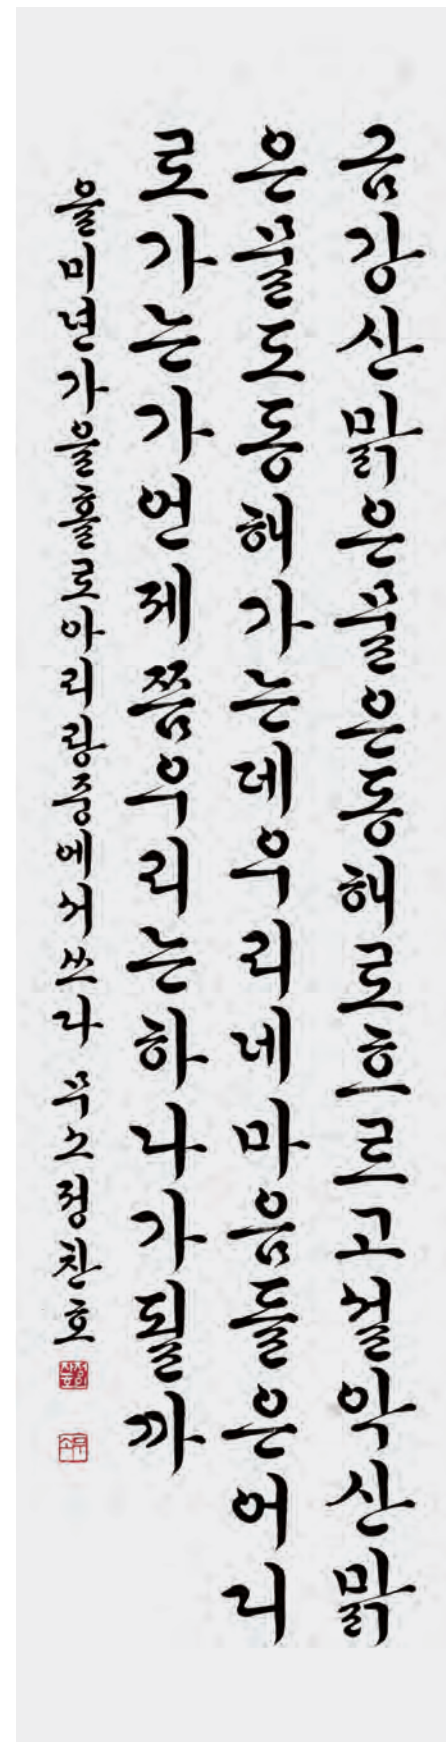 금강산맑은물은동해로흐르고설악산맑
은물도동해가는데우리네마음들은어디
로가는가언제쯤우리는하나가될까
을미년가을홀로아리랑중에서쓰다 무소정찬호